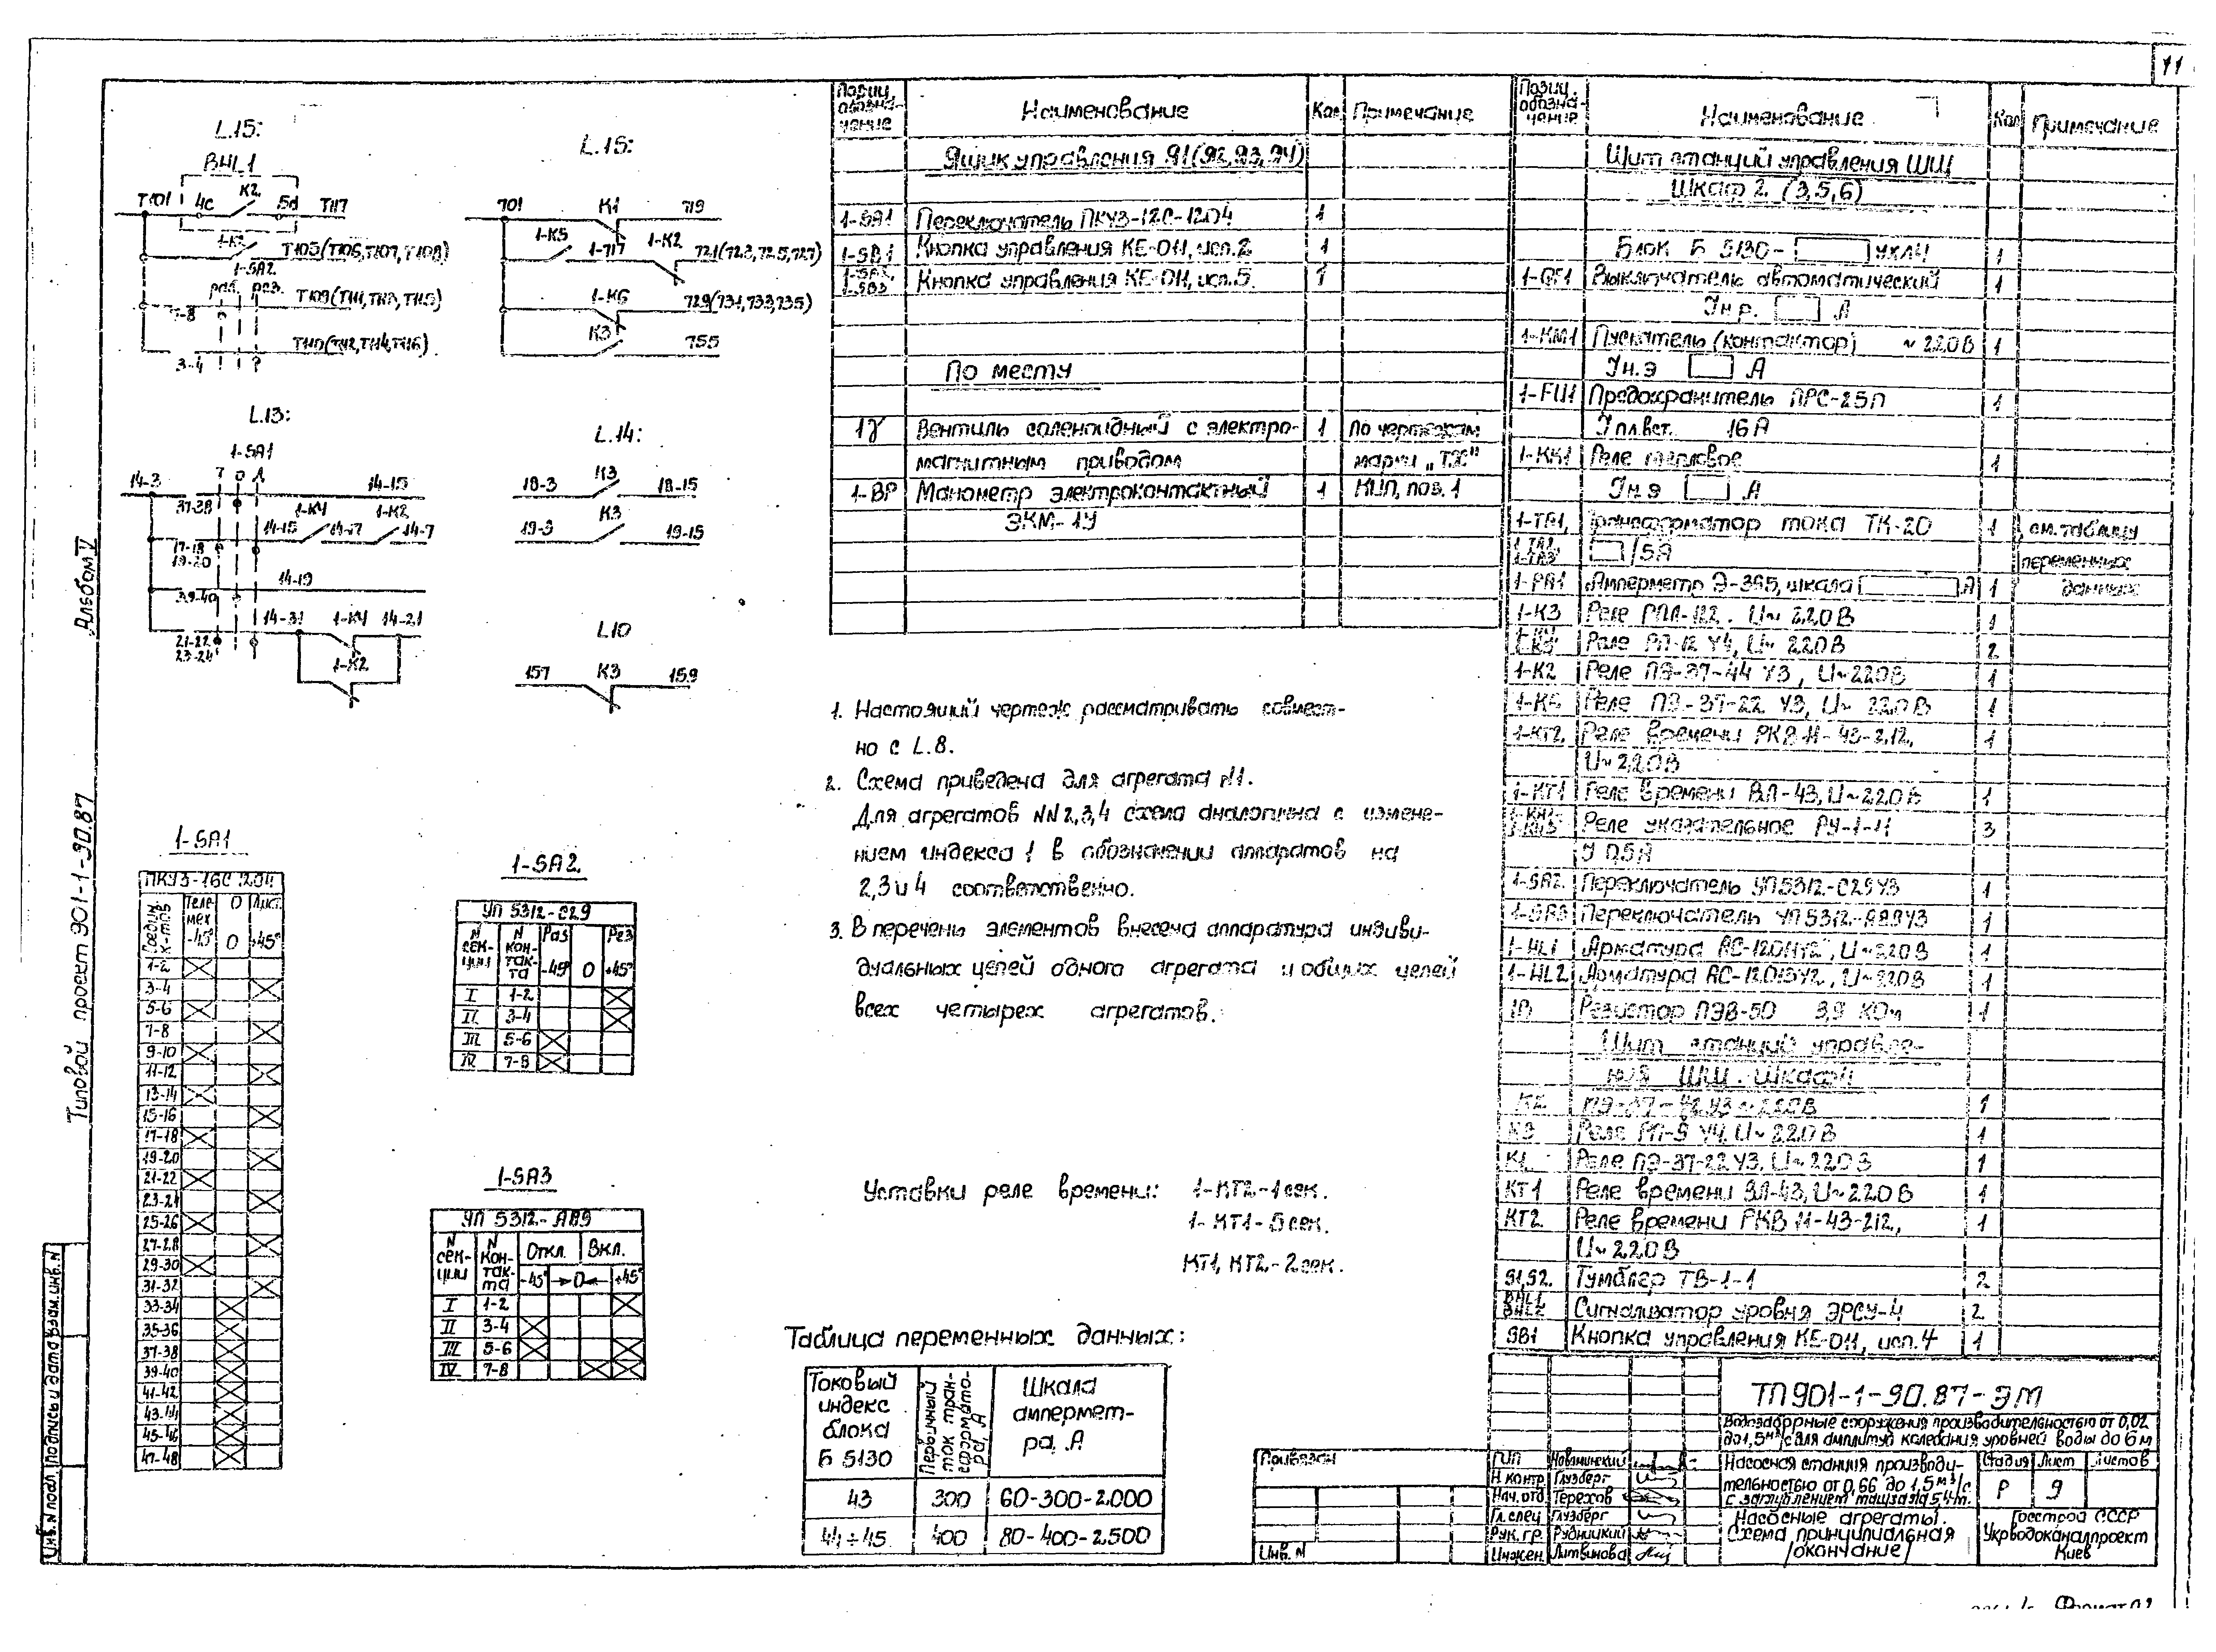 11
L.15:
ВНL1
Т101 4с К2 5d Т117
1-К3 Т105(Т106,Т107,Т108)
1-SA2
раб. рез.
7-8 Т109(Т111,Т113,Т115)
3-4 Т110(Т112,Т114,Т116)
L.15:
701 К1 719
1-К5 1-717 1-К2 721(723,725,727)
1-К6 729(731,733,735)
К3 755
L.13:
1-SA1
Т О Л
14-3 37-38 14-13
17-18 14-15 1-К4 14-17 1-К2 14-7
19-20
39-40 14-19
21-22 14-31 1-К4 14-21
23-24
1-К2
L.14:
18-3 К3 18-15
19-3 К3 19-15
L10
157 К3 159
Альбом V
Типовой проект 901-1-90.87
1-SA1
ПКУ3-16С 1204
Соедин. к-тов Телемех О Дист.
-45° 0 +45°
1-2
3-4
5-6
7-8
9-10
11-12
13-14
15-16
17-18
19-20
21-22
23-24
25-26
27-28
29-30
31-32
33-34
35-36
37-38
39-40
41-42
43-44
45-46
47-48
1-SA2
УП 5312-С29
N сек-ции N кон-так-та Раб Рез
-45° 0 +45°
I 1-2
II 3-4
III 5-6
IV 7-8
1-SA3
УП 5312-А89
N сек-ции N кон-так-та Откл. Вкл.
-45° 0 +45°
I 1-2
II 3-4
III 5-6
IV 7-8
Позиц. обозна-чение Наименование Кол. Примечание
Ящик управления Я1(Я2,Я3,Я4)
1-SA1 Переключатель ПКУ3-12С-1204 1
1-SB1 Кнопка управления КЕ-011, исп.2 1
1-SB2, 1-SB3 Кнопка управления КЕ-011, исп.5 1
По месту
1У Вентиль соленоидный с электро- 1 По чертежам
магнитным приводом марки „ТХ"
1-ВР Манометр электроконтактный 1 КИП, поз.1
ЭКМ-1У
1. Настоящий чертеж рассматривать совмест-
но с L.8.
2. Схема приведена для агрегата N1.
Для агрегатов NN2,3,4 схема аналогична с измене-
нием индекса 1 в обозначении аппаратов на
2,3и4 соответственно.
3. В перечень элементов внесена аппаратура индиви-
дуальных цепей одного агрегата и общих цепей
всех четырех агрегатов.
Уставки реле времени: 1-КТ2-1сек.
1-КТ1-5сек.
КТ1, КТ2-2сек.
Таблица переменных данных:
Токовый индекс блока Б 5130 Первичный ток тран-сформато-ра, А Шкала ампермет-ра, А
43 300 60-300-2000
44÷45 400 80-400-2500
Позиц. обозна-чение Наименование Кол Примечание
Щит станций управления ШЩ
Шкаф 2 (3,5,6)
Блок Б 5130- УХЛ4 1
1-QF1 Выключатель автоматический 1
Iн.р. А
1-КМ1 Пускатель (контактор) ~220В 1
Iн.э А
1-FU1 Предохранитель ПРС-25П 1
Iпл.вст. 16А
1-КК1 Реле тепловое 1
Iн.э А
1-ТА1, Трансформатор тока ТК-20 1 см.таблицу
1-ТА2 1-ТА3 /5А переменных
1-РА1 Амперметр Э-365, шкала А 1 данных
1-К3 Реле РПЛ-122. U~220В 1
Реле РП-12 У4, U~ 220В 2
1-К2 Реле ПЭ-37-44 У3, U~220В 1
1-К6 Реле ПЭ-37-22 У3, U~ 220В 1
1-КТ2 Реле времени РКВ 11-43-212, 1
U~220В
1-КТ1 Реле времени ВЛ-43, U~220В 1
1-КН1 1-КН3 Реле указательное РУ-1-11 3
I 0,5А
1-SA2 Переключатель УП5312-С29У3 1
1-SA3 Переключатель УП5312-А89У3 1
1-HL1 Арматура АС-12011У2, U~220В 1
1-HL2 Арматура АС-12013У2, U~220В 1
1R Резистор ПЭВ-50 3,9 КОм 1
Щит станций управле-
ния ШЩ. Шкаф 4
К2 ПЭ-37-42У3 ~220В 1
К3 Реле РП-9 У4, U~220В 1
К1 Реле ПЭ-37-22У3, U~220В 1
КТ1 Реле времени ВЛ-43, U~220В 1
КТ2 Реле времени РКВ 11-43-212, 1
U~220В
S1,S2. Тумблер ТВ-1-1 2
ВНL1 ВНL2 Сигнализатор уровня ЭРСУ-4 2
SB1 Кнопка управления КЕ-011, исп.4 1
ТП901-1-90.87-ЭМ
Водозаборные сооружения производительностью от 0,02
до1,5м³/с для амплитуд колебания уровней воды до 6м
Привязан
Инв. N
ГИП Новаминский
Н.контр Глузберг
Нач.отд Терехов
Гл.спец Глузберг
Рук.гр. Рудницкий
Инжен. Литвинова
Насосная станция производи-
тельностью от 0,66 до 1,5м³/с
с заглублением машзала 5,4м.
Стадия Лист Листов
Р 9
Насосные агрегаты.
Схема принципиальная
/окончание/
Госстрой СССР
Укрводоканалпроект
Киев
Инв.N подл. Подпись и дата Взам.инв.N
Формат А2